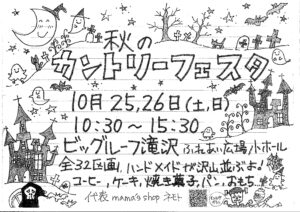 秋の
カントリーフェスタ
10月25,26日(土,日)
10:30〜15:30
ビッグルーフ滝沢 ふれあい広場小ホール
全32区画 ハンドメイドが沢山並ぶよ!
コーヒー,ケーキ,焼き菓子,パン,おもち
代表 mama's shop ネモト